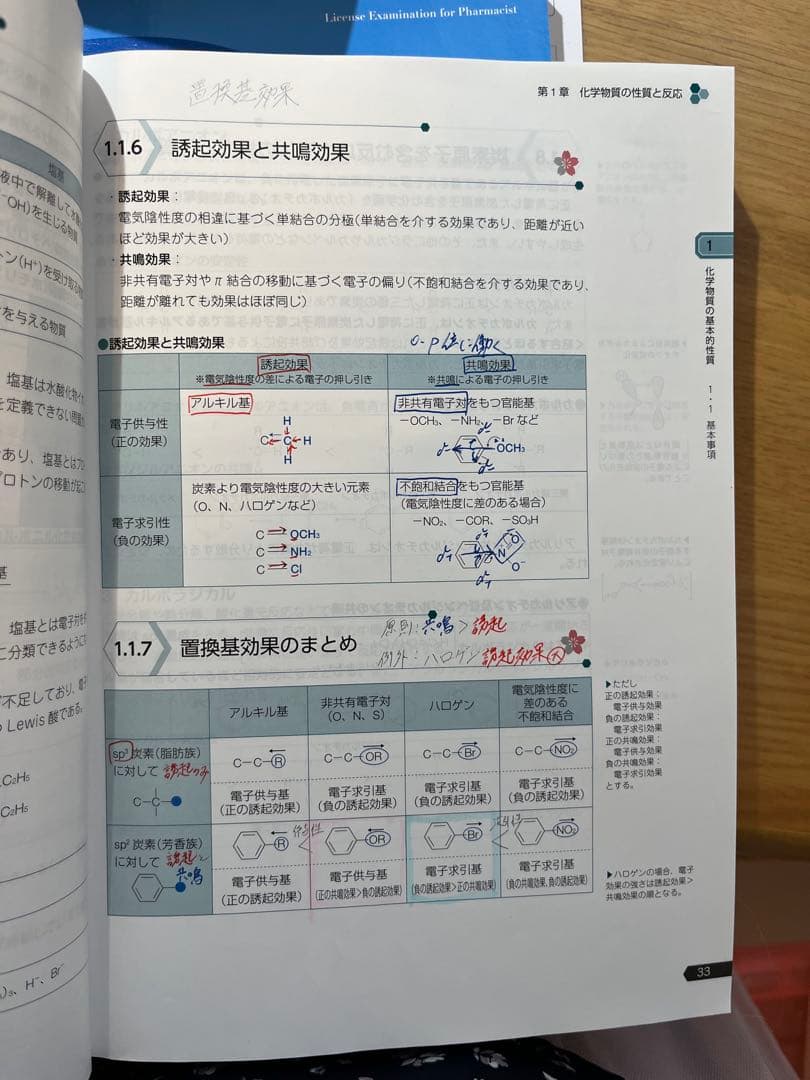 License Examination for Pharmacist
置換基効果
第1章 化学物質の性質と反応
1.1.6 誘起効果と共鳴効果
・誘起効果：
電気陰性度の相違に基づく単結合の分極(単結合を介する効果であり、距離が近い
ほど効果が大きい)
・共鳴効果：
非共有電子対やπ結合の移動に基づく電子の偏り(不飽和結合を介する効果であり、
距離が離れても効果はほぼ同じ)
●誘起効果と共鳴効果
o-p位に働く
誘起効果
※電気陰性度の差による電子の押し引き
共鳴効果
※共鳴による電子の押し引き
電子供与性
(正の効果)
アルキル基
H
C C H
H
非共有電子対をもつ官能基
-OCH₃、-NH₂、-Brなど
OCH₃
電子求引性
(負の効果)
炭素より電気陰性度の大きい元素
(O、N、ハロゲンなど)
C OCH₃
C NH₂
C Cl
不飽和結合をもつ官能基
(電気陰性度に差のある場合)
-NO₂、-COR、-SO₃H
O
N
O⁻
1.1.7 置換基効果のまとめ
原則：共鳴＞誘起
例外：ハロゲン 誘起効果大
アルキル基
非共有電子対
(O、N、S)
ハロゲン
電気陰性度に
差のある
不飽和結合
sp³炭素(脂肪族)
に対して 誘起のみ
C
C-C-R
電子供与基
(正の誘起効果)
C-C-OR
電子求引基
(負の誘起効果)
C-C-Br
電子求引基
(負の誘起効果)
C-C-NO₂
電子求引基
(負の誘起効果)
sp²炭素(芳香族)
に対して 誘起と
共鳴
R
電子供与基
(正の誘起効果)
OR
電子供与基
(正の共鳴効果>負の誘起効果)
Br
電子求引基
(負の誘起効果>正の共鳴効果)
NO₂
電子求引基
(負の共鳴効果, 負の誘起効果)
1
化学物質の基本的性質
1・1 基本事項
▶ただし
正の誘起効果：
電子供与効果
負の誘起効果：
電子求引効果
正の共鳴効果：
電子供与効果
負の共鳴効果：
電子求引効果
とする。
▶ハロゲンの場合、電子
効果の強さは誘起効果>
共鳴効果の順となる。
33
塩基
液中で解離して
OH)を生じる物質
トン(H⁺)を受け取る
を与える物質
塩基は水酸化物イ
を定義できない
あり、塩基とは
プロトンの移動が
基
塩基とは電子対を
に分類できるように
不足しており、電
Lewis 酸である。
C₂H₅
C₂H₅
H⁻、Br⁻